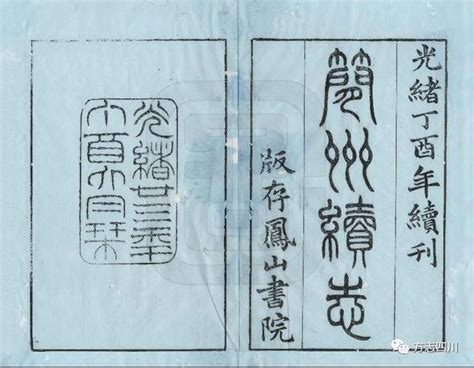 光緒丁酉年續刊
簡州續志
版存鳳山書院
光緒廿三年
丁酉月栞
方志四川